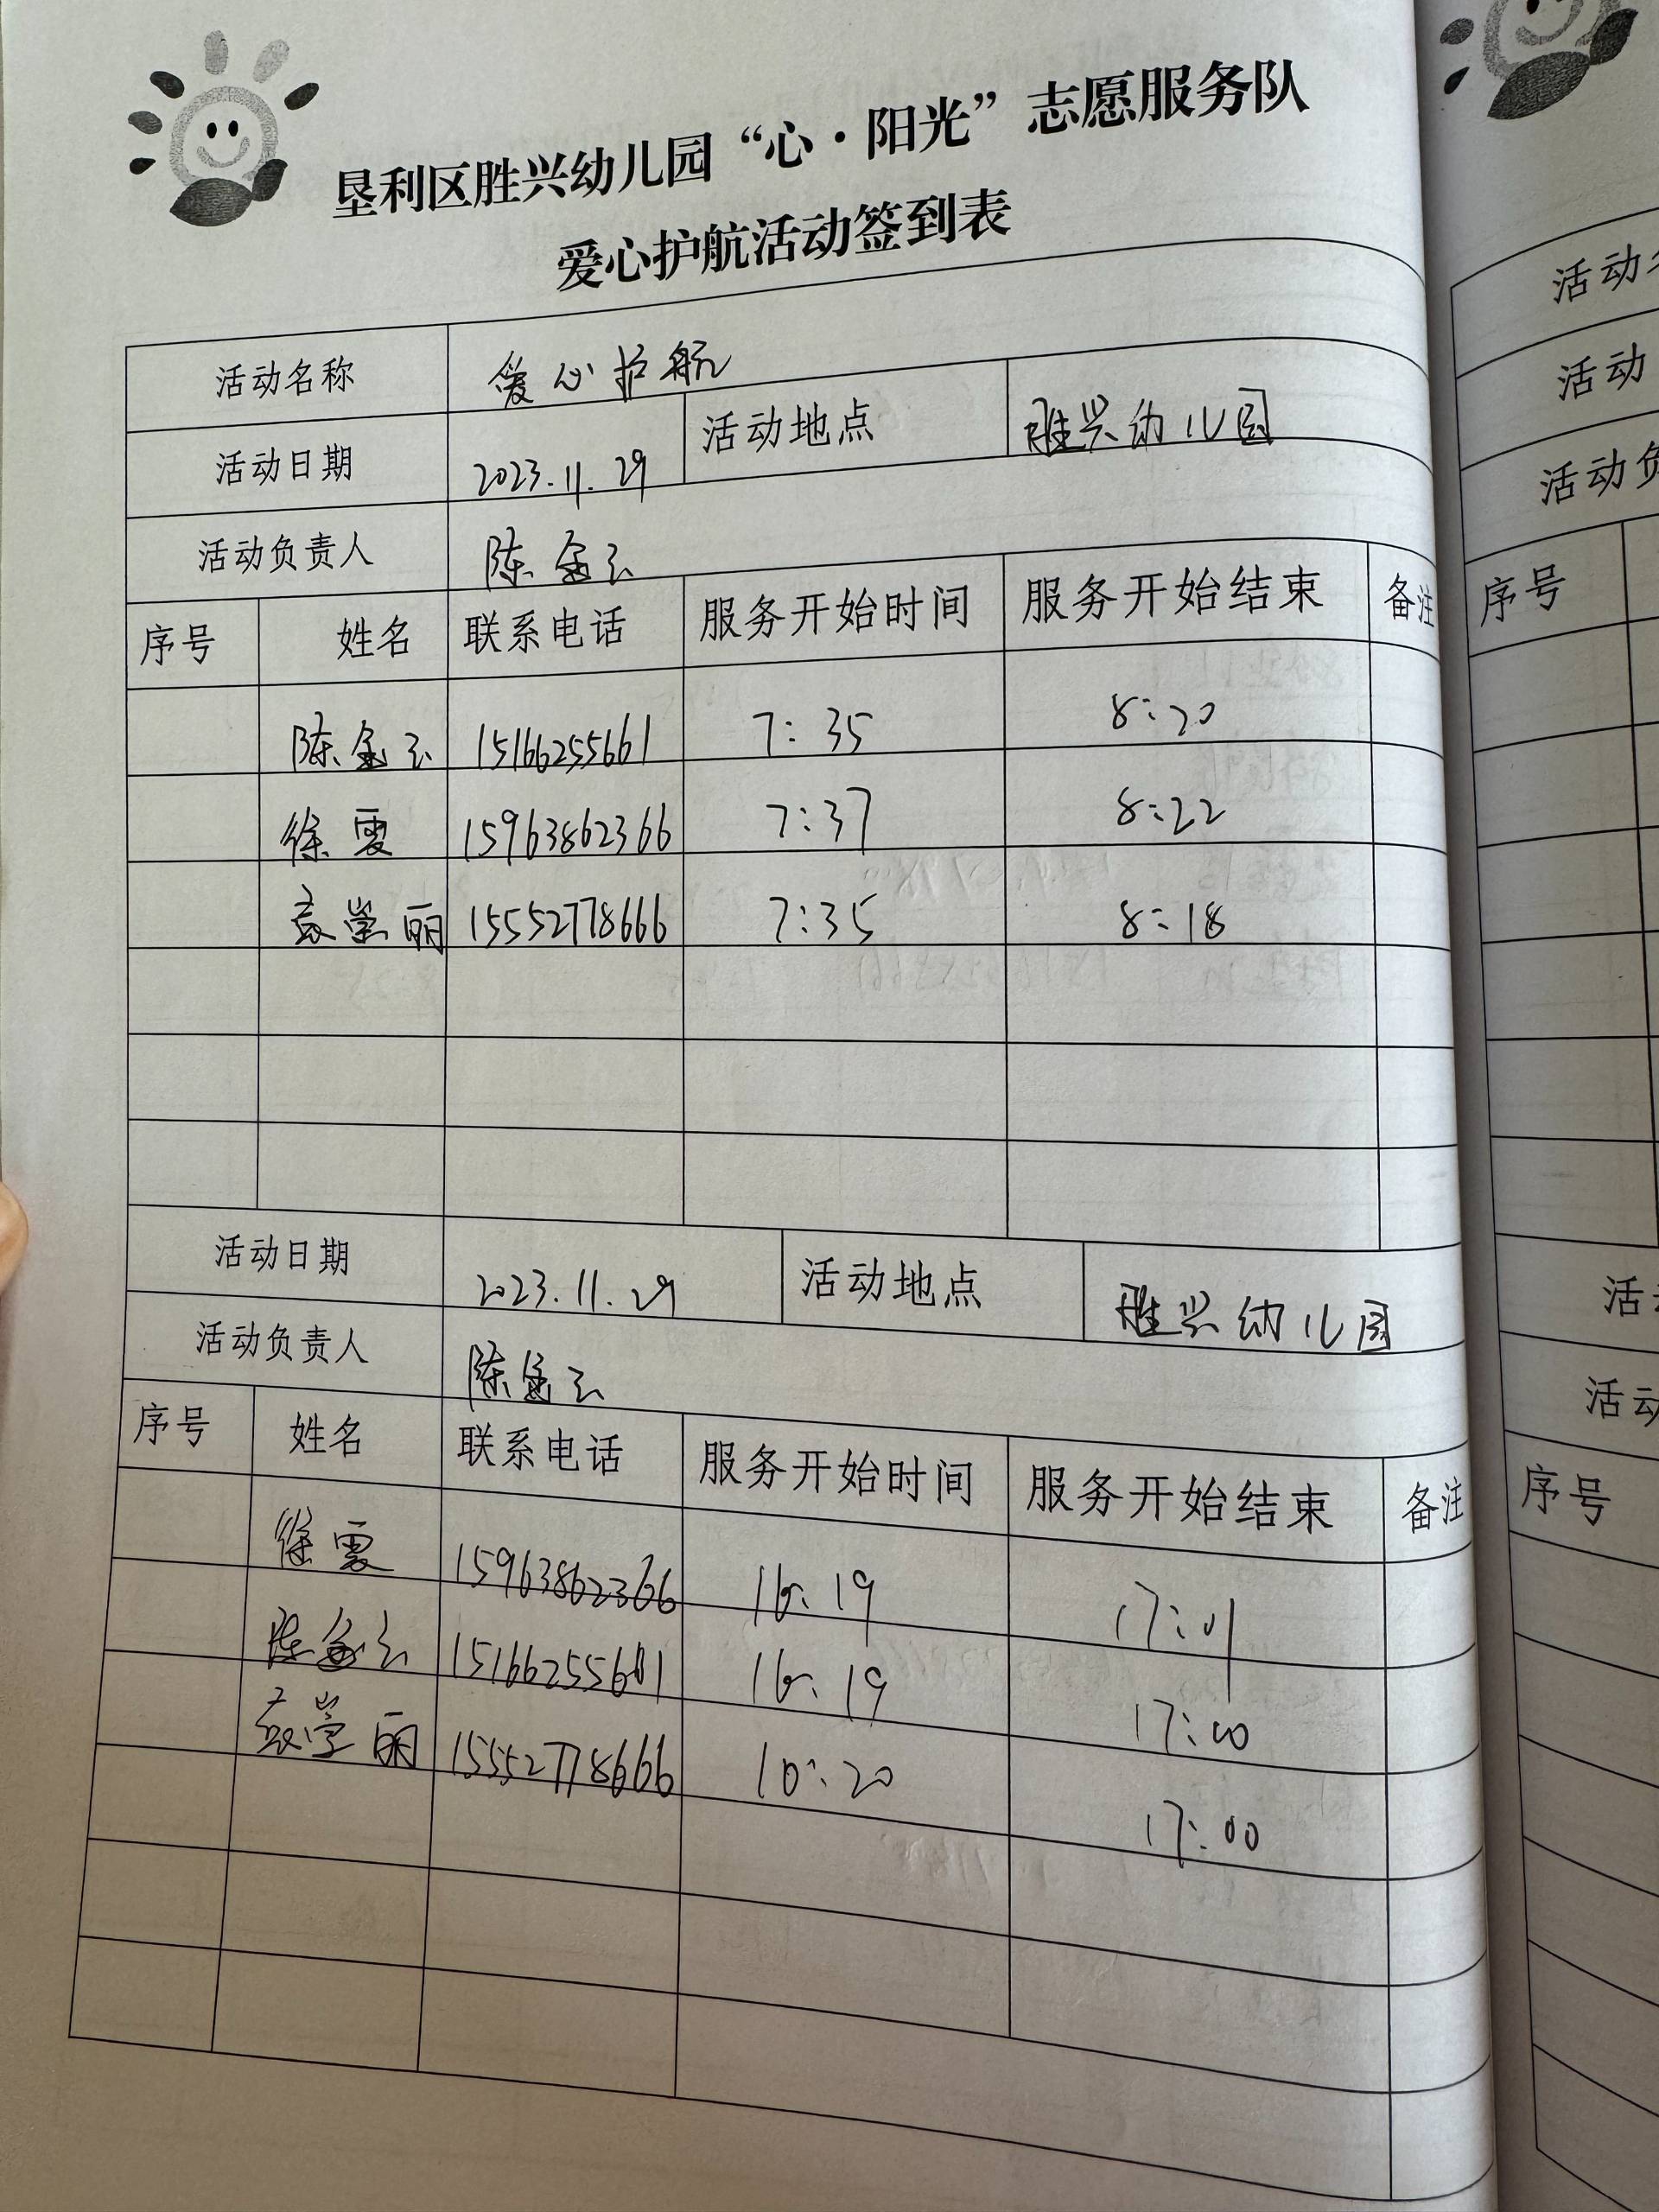 垦利区胜兴幼儿园“心·阳光”志愿服务队
爱心护航活动签到表
活动名称 爱心护航
活动日期 2023.11.29 活动地点 胜兴幼儿园
活动负责人 陈金云
序号 姓名 联系电话 服务开始时间 服务开始结束 备注
陈金云 15166255661 7:35 8:20
徐霞 15963862366 7:37 8:22
学丽 15552778666 7:35 8:18
活动日期 2023.11.29 活动地点 胜兴幼儿园
活动负责人 陈金云
序号 姓名 联系电话 服务开始时间 服务开始结束 备注
徐霞 15963862366 16:19 17:01
陈金云 16:19 17:00
学丽 15552778666 17:00
活动
活动
活动负
序号
活
活动
序号